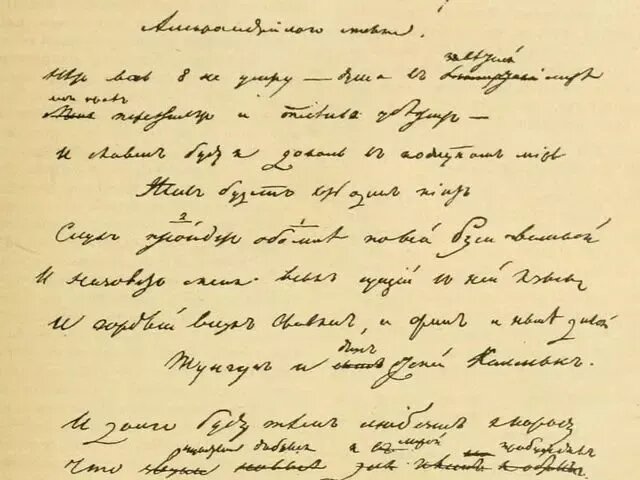 Александрійскаго столпа.
завѣтной
Нѣтъ весь я не умру — душа въ лирѣ
мой прахъ
Меня переживетъ и тлѣнья убѣжитъ —
И славенъ буду я доколь въ подлунномъ мірѣ
Живъ будетъ хоть одинъ піитъ
2 1
Слухъ пройдетъ обо мнѣ по всей Руси великой
И назоветъ меня всякъ сущій въ ней языкъ
И гордый внукъ Славянъ, и Финъ и нынѣ дикой
другъ
Тунгузъ и степей Калмыкъ.
И долго буду тѣмъ любезенъ народу
Что звуки новые для я обрѣлъ